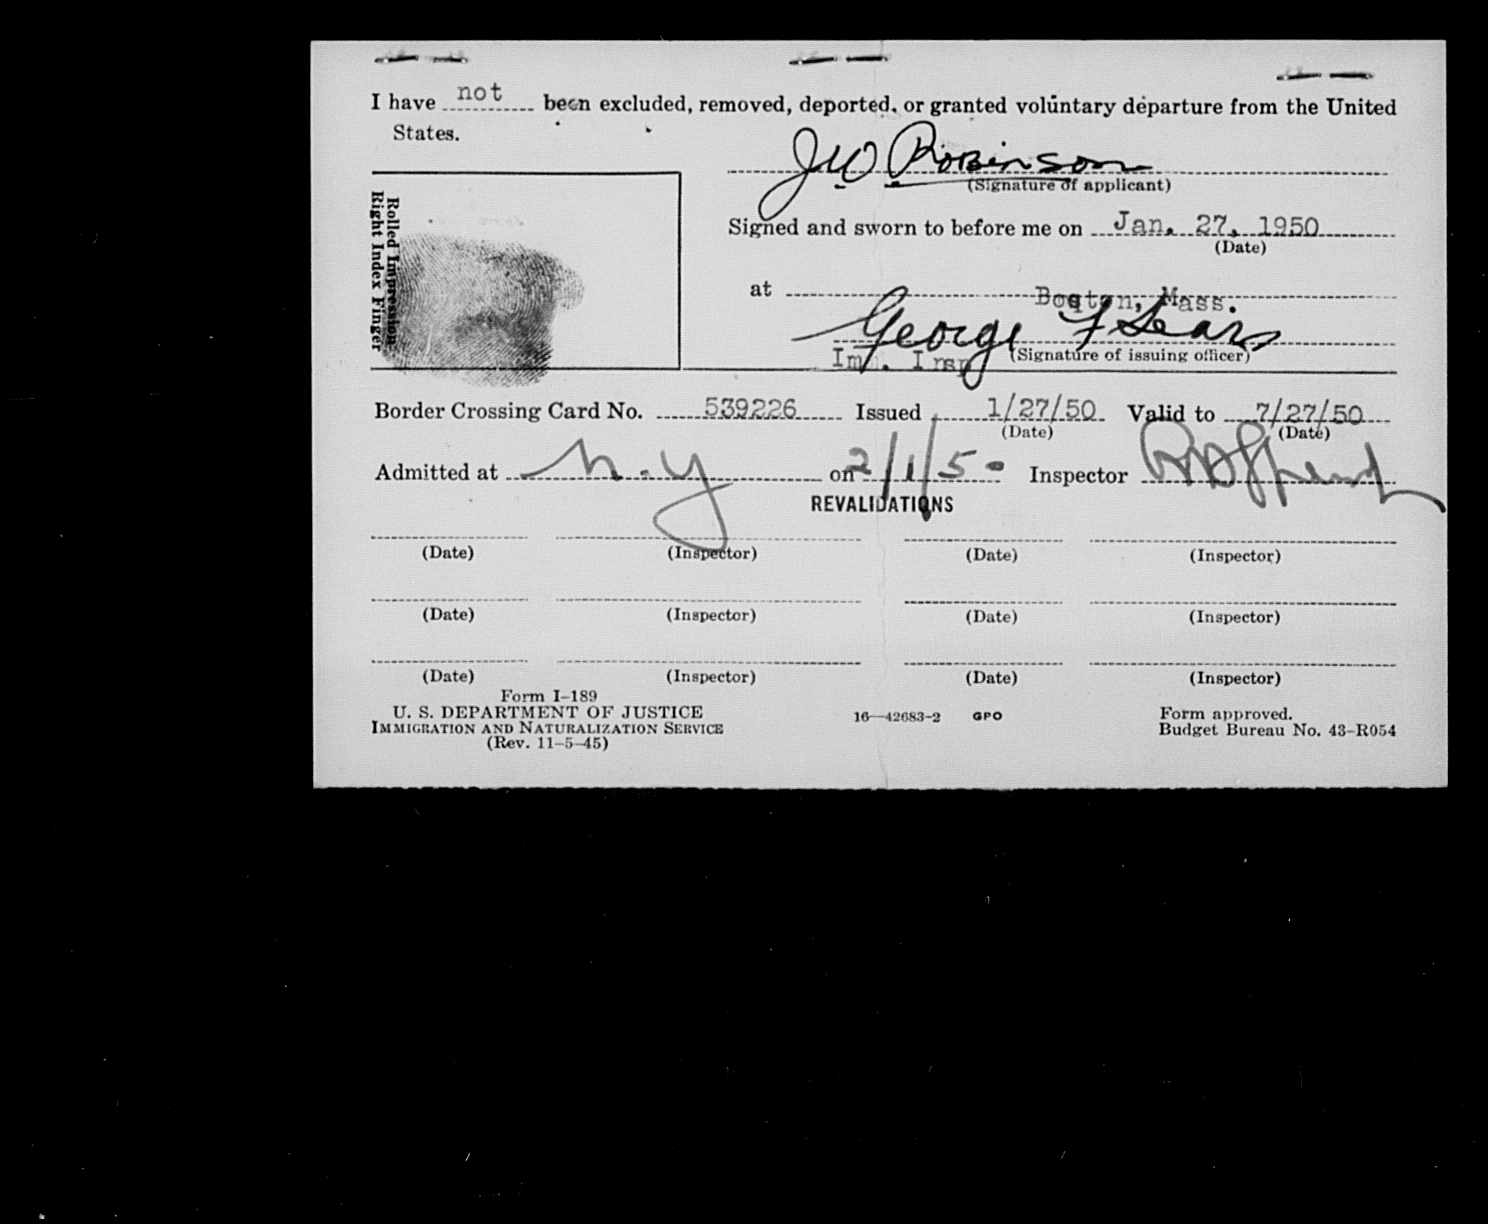 I have not been excluded, removed, deported, or granted voluntary departure from the United
States.
JW Robinson
(Signature of applicant)
Rolled Impression
Right Index Finger
Signed and sworn to before me on Jan. 27, 1950
(Date)
at Boston, Mass.
George F Sears
Imm. Insp. (Signature of issuing officer)
Border Crossing Card No. 539226 Issued 1/27/50 Valid to 7/27/50
(Date) (Date)
Admitted at N.Y on 2/1/50 Inspector
REVALIDATIONS
(Date) (Inspector) (Date) (Inspector)
(Date) (Inspector) (Date) (Inspector)
(Date) (Inspector) (Date) (Inspector)
Form I-189
U. S. DEPARTMENT OF JUSTICE
IMMIGRATION AND NATURALIZATION SERVICE
(Rev. 11-5-45)
16—42683-2 GPO
Form approved.
Budget Bureau No. 43-R054